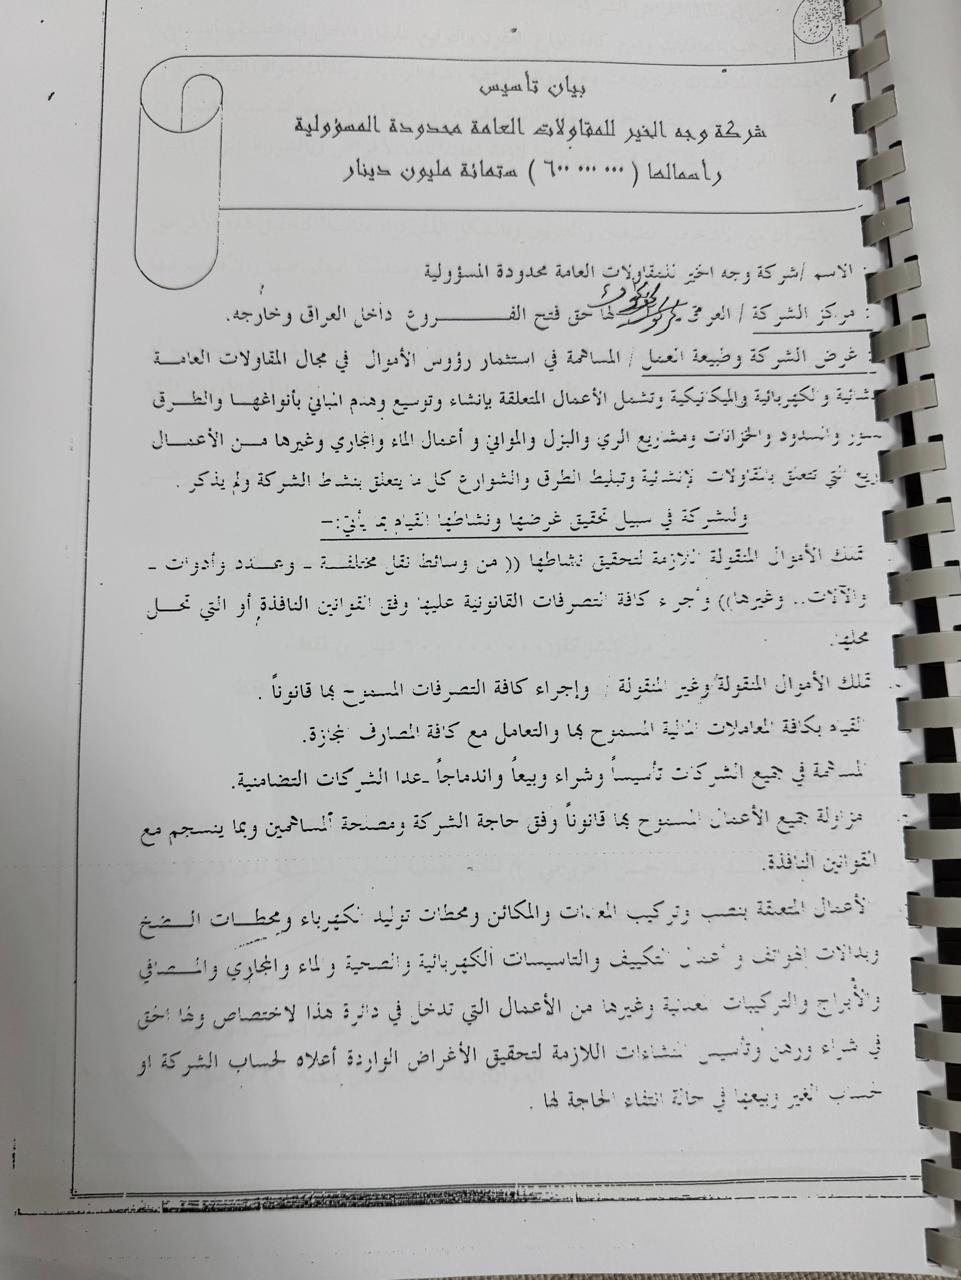 بيان تأسيس
شركة وجه الخير للمقاولات العامة محدودة المسؤولية
رأسمالها ( ٦٠٠ ٠٠٠ ٠٠٠ ) ستمائة مليون دينار
: الاسم /شركة وجه الخير للمقاولات العامة محدودة المسؤولية
: مركز الشركة / العراق لها حق فتح الفـــــروع داخل العراق وخارجه.
: غرض الشركة وطبيعة العمل / المساهمة في استثمار رؤوس الأموال في مجال المقاولات العامة
والكهربائية والميكانيكية وتشمل الأعمال المتعلقة بإنشاء وتوسيع وهدم المباني بأنواعها والطرق
والسدود والخزانات ومشاريع الري والبزل والموانئ و أعمال الماء والمجاري وغيرها من الأعمــال
التي تتعلق بالمقاولات لإنشائية وتبليط الطرق والشوارع كل ما يتعلق بنشط الشركة ولم يذكر .
وللشركة في سبيل تحقيق غرضها ونشاطها القيام بما يأتي:-
تملك الأموال المنقولة اللازمة لتحقيق نشاطها (( من وسائط نقل مختلفـة ـ وعـدد وأدوات ـ
والآلات.. وغيرها)) وأجراء كافة التصرفات القانونية عليها وفق القوانين النافذة أو التي تحـل
محلها.
تملك الأموال المنقولة وغير المنقولة / وإجراء كافة التصرفات المسموح بها قانوناً .
القيام بكافة المعاملات المالية المسموح بها والتعامل مع كافة المصارف المجازة.
المساهمة في جميع الشركات تأسيساً وشراء وبيعاً واندماجاً –عدا الشركات التضامنية.
مزاولة جميع الأعمال المسموح بها قانوناً وفق حاجة الشركة ومصلحة المساهمين وبما ينسجم مع
القوانين النافذة.
الأعمال المتعلقة بنصب وتركيب المعدات والمكائن ومحطات توليد الكهرباء ومحطـات الـضخ
وبدالات الهواتف و أعمال التكييف والتاسيسات الكهربائية والصحية والماء والمجاري والمـصافي
والأبراج والتركيبات المعدنية وغيرها من الأعمال التي تدخل في دائرة هذا لاختصاص ولها الحق
في شراء ورهن وتأسيس المنشاءات اللازمة لتحقيق الأغراض الواردة أعلاه لحساب الشركة او
حساب الغير وبيعها في حالة انتفاء الحاجة لها .